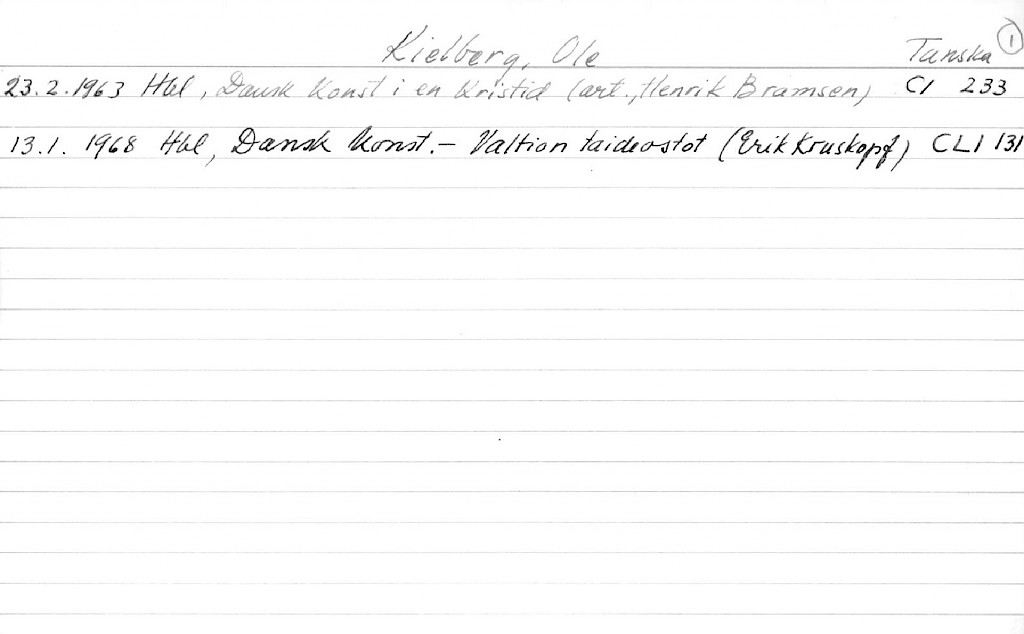 Kielberg, Ole Tanska 1
23.2.1963 Hbl, Dansk Konst i en Kristid (art., Henrik Bramsen) CI 233
13.1. 1968 Hbl, Dansk konst. - Valtion taideostot (Erik Kruskopf) CLI 131